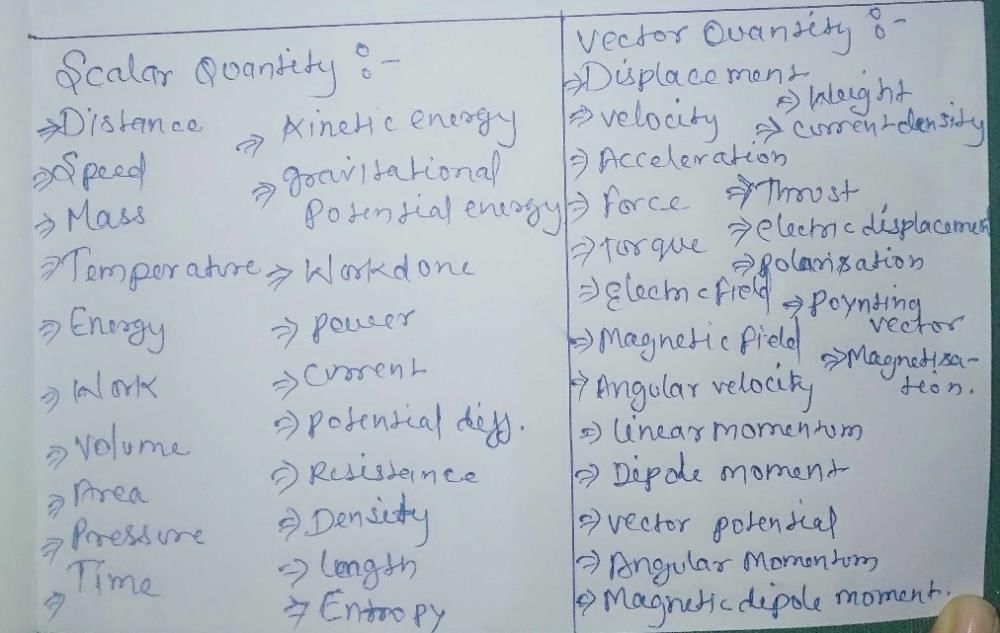 Scalar Quantity :-
⇒Distance
⇒Speed
⇒Mass
⇒Temperature
⇒Energy
⇒Work
⇒Volume
⇒Area
⇒Pressure
⇒Time
⇒Kinetic energy
⇒gravitational
Potential energy
⇒Workdone
⇒power
⇒current
⇒potential diff.
⇒Resistance
⇒Density
⇒length
⇒Entropy
Vector Quantity :-
⇒Displacement
⇒velocity
⇒Acceleration
⇒force
⇒torque
⇒Electric field
⇒Magnetic field
⇒Angular velocity
⇒linear momentum
⇒Dipole moment
⇒vector potential
⇒Angular Momentum
⇒Magnetic dipole moment.
⇒Weight
⇒current density
⇒Thrust
⇒electric displacemen
⇒polarisation
⇒Poynting
vector
⇒Magnetisa-
tion.